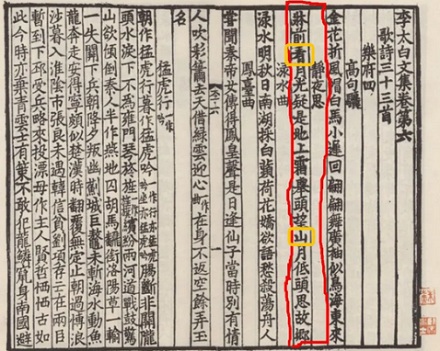 李太白文集卷第六
歌詩三十三首
樂府四
高句驪
金花折風帽白馬小遲回翩翩舞廣袖似鳥海東來
靜夜思
牀前看月光疑是地上霜舉頭望山月低頭思故鄉
淥水曲
淥水明秋日南湖採白蘋荷花嬌欲語愁殺蕩舟人
鳳臺曲
嘗聞秦帝女傳得鳳皇聲是日逢仙子當時別有情
人吹彩簫去天借綠雲迎心在身不返空餘弄玉
名
猛虎行
朝作猛虎行暮作猛虎吟腸斷非關隴
頭水淚下不為雍門琴旌旗繽紛兩河道戰鼓驚
山欲傾倒秦人半作燕地囚胡馬翻銜洛陽草一輸
一失關下兵朝降夕叛幽薊城巨鼇未斬海水動魚
龍奔走安得寧頗似楚漢時翻覆無定止朝過博浪
沙暮入淮陰市張良未遇韓信貧劉項存亡在兩臣
暫到下邳受兵略來投漂母作主人賢哲栖栖古如
此今時亦棄青雲士有策不敢犯龍鱗竄身南國避